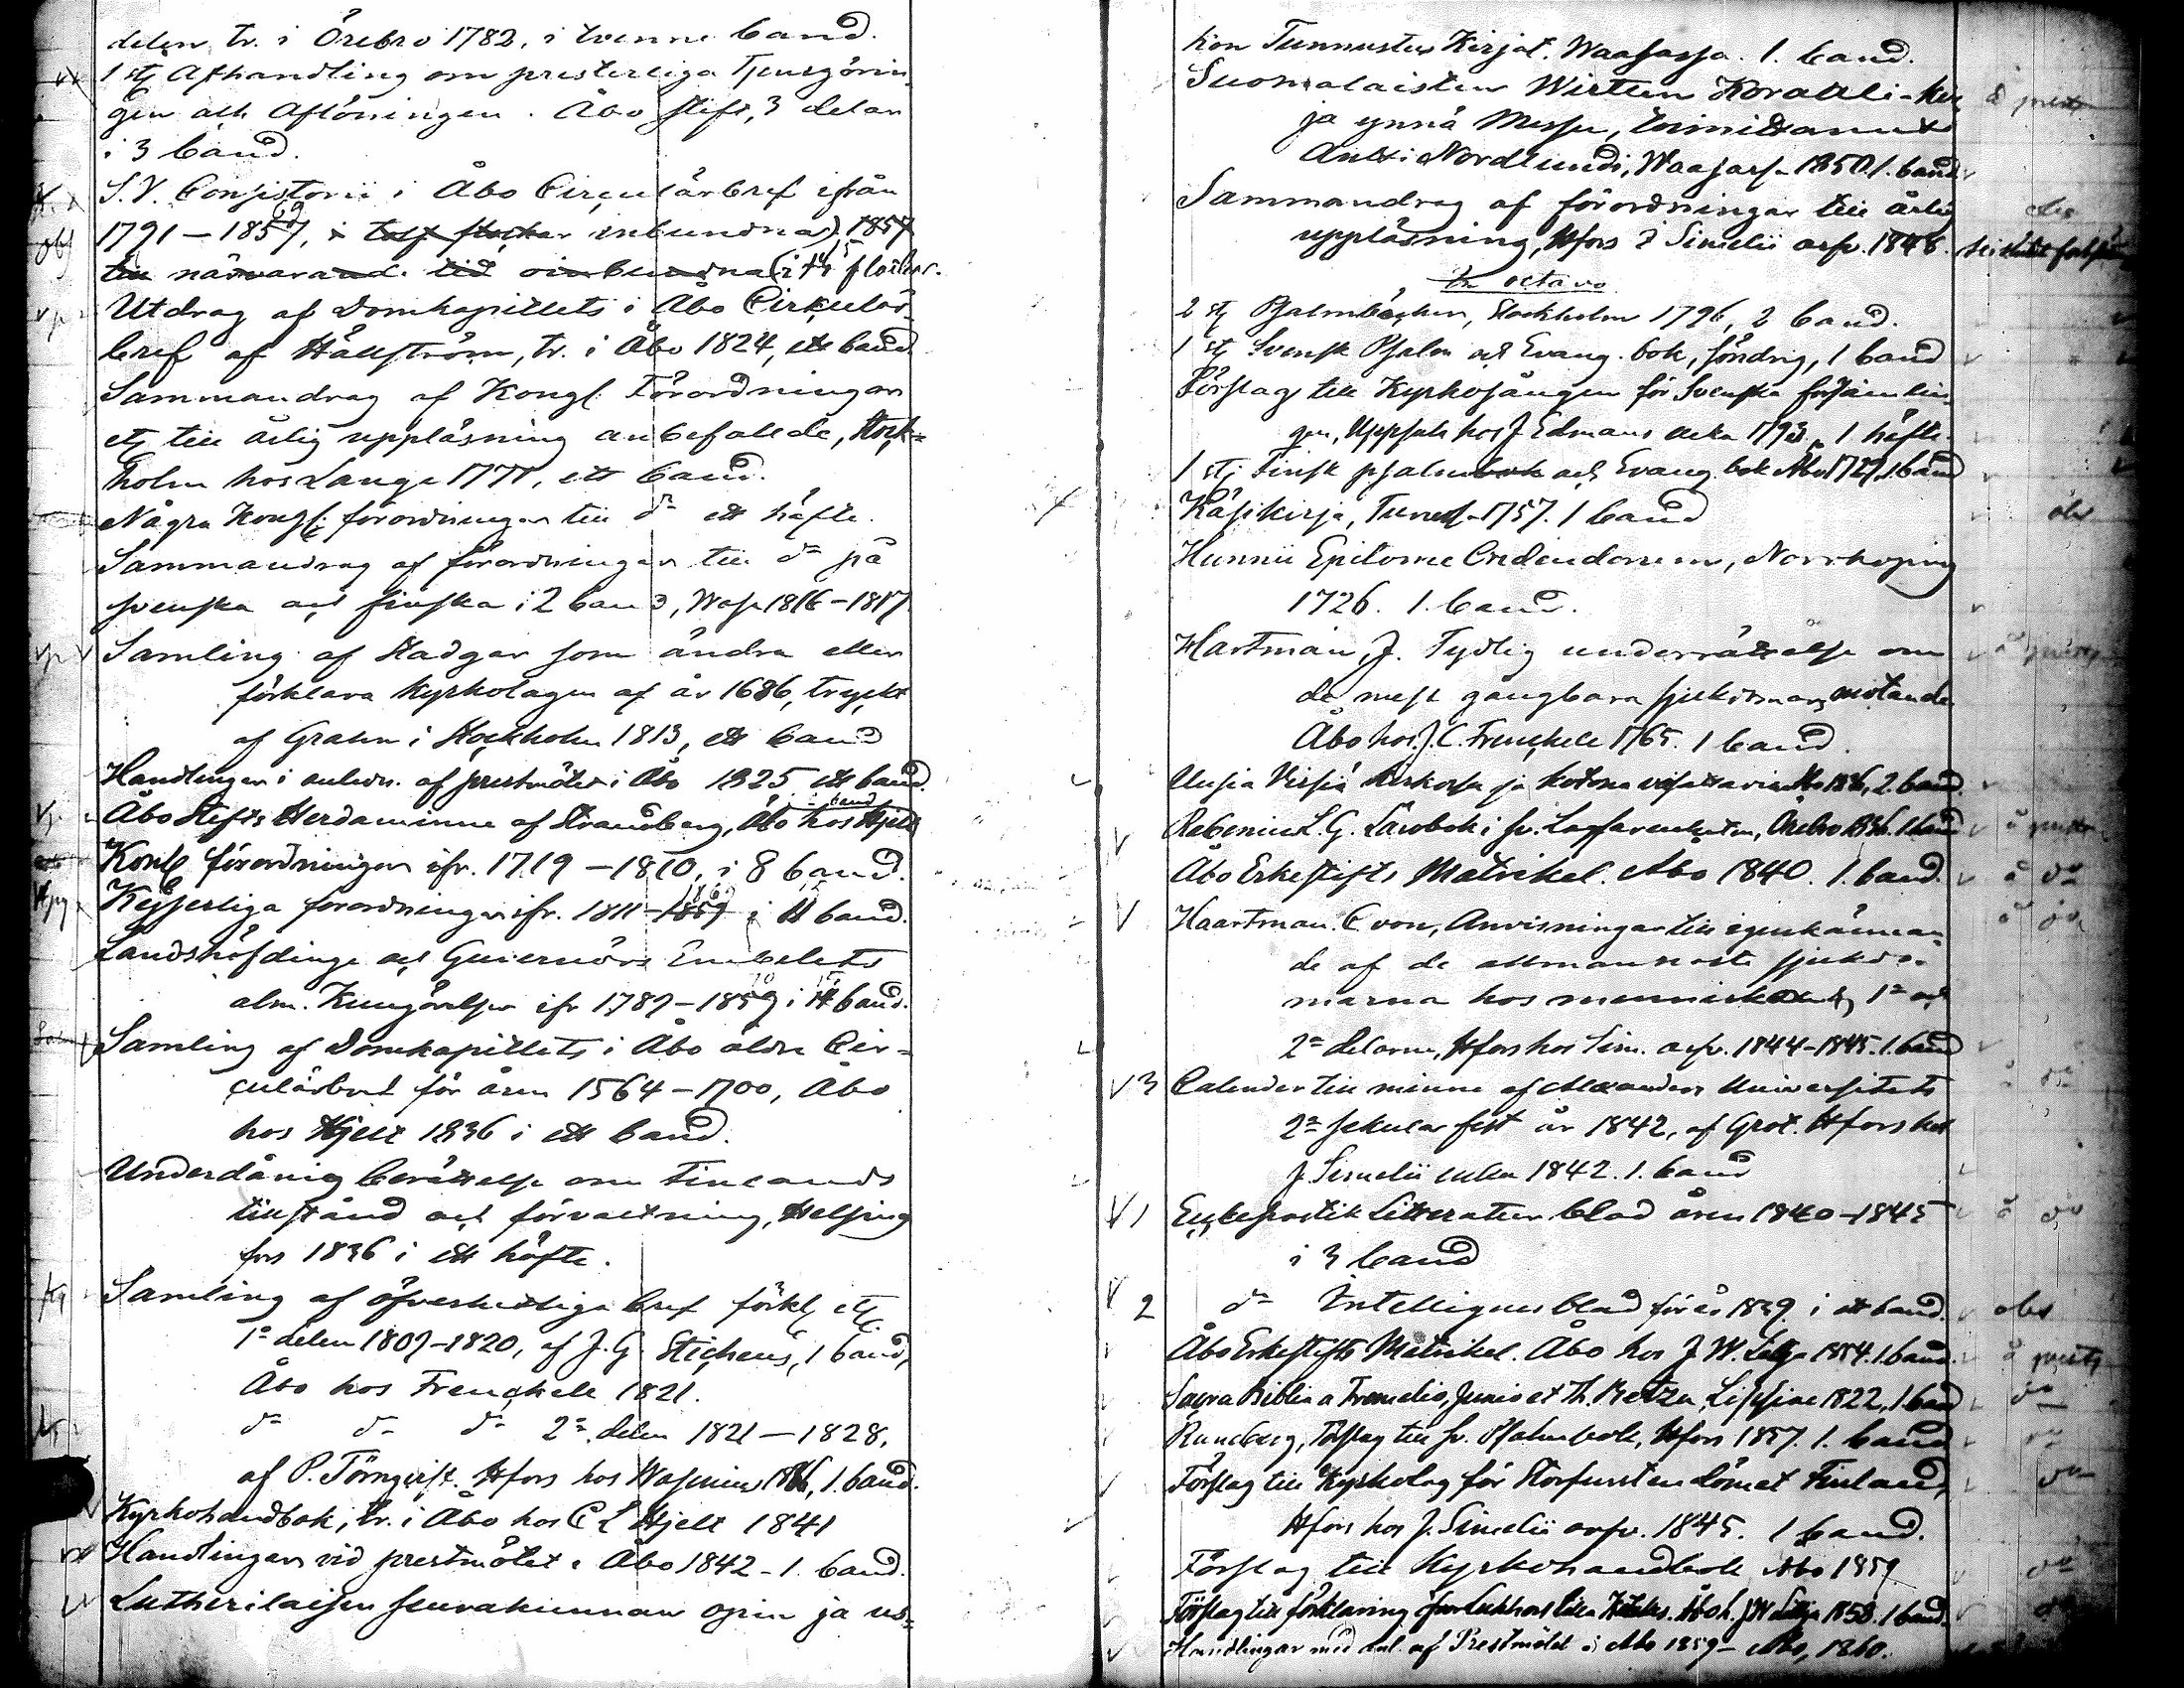 delen, tr. i Örebro 1782, i tvenne band.
1 st Afhandling om presterliga Tjenstgörin-
gen och Aflöningen. Åbo stift, 3 delar
i 3 band.
S. V. Consistorii i Åbo Circulärbref ifrån
1791–1857, inbundna, 1857
till närvarande tid oinbundna
Utdrag af Domkapitlets i Åbo Cirkulär-
bref af Hällström, tr. i Åbo 1824, ett band
Sammandrag af Kongl. Förordningar
etc till årlig uppläsning anbefallde, Stock-
holm hos Lange 1777, ett band.
Några Kongl. förordningar till do ett häfte.
Sammandrag af förordningar till do på
svenska och finska i 2 band, Wasa 1816–1817
Samling af Stadgar som ändra eller
förklara kyrkolagen af år 1686, tryckt
af Grahn i Stockholm 1813, ett band
Handlingar i anledn. af prestmötet i Åbo 1825 ett band.
Åbo Stifts Herdaminne af Strandberg, Åbo hos Hjelt band
Kongl förordningar ifr. 1719–1810, i 8 band.
Kejserliga förordningar ifr. 1811–1859 1860 i band.
Landshöfdinge och Guvernörs Embetets
alm. Kungörelser ifr 1789–1859 i band.
Samling af Domkapitlets i Åbo äldre Cir-
culärbref för åren 1564–1700, Åbo
hos Hjelt 1836 i ett band.
Underdånig berättelse om Finlands
tillstånd och förvaltning, Helsing
fors 1836 i ett häfte.
Samling af öfverhetliga bref förkl. etc
1a delen 1809–1820, af J. G. 1 band,
Åbo hos Frenckell 1821.
do do do 2a delen 1821–1828.
af P. Törnqvist. Hfors hos Wasenius 1 band.
Kyrkohandbok, tr. i Åbo hos C L Hjelt 1841
Handlingar vid prestmötet i Åbo 1842 - 1. band.
Lutherilaisen seurakunnan opin ja us-
kon Tunnustus Kirjat. Waasassa. 1. band.
Suomalaisten Wirtten Koraali-kir
ja ynnä Messu, toimittanut
Antti Nordlundi, Waasassa 1850. 1. band
Sammandrag af förordningar till årlig
uppläsning, Hfors J Simelii arfv. 1848.
In octavo
2 st Psalmböcker, Stockholm 1796, 2 band.
1 st Svensk Psalm och Evang. bok, söndrig, 1 band
Förslag till Kyrkosången för Svenska församlin-
gen, Uppsala hos J Edmans enka 1793, 1 häfte.
1 st Finsk psalmbok och Evang. bok Åbo 1 band
Käsikirja, Turussa 1757. 1 band
Hunnii Epitome Credendorum, Norrkoping
1726. 1. band.
Hartman, J. Tydlig underrättelse om
de mest gångbara sjukdomars motande
Åbo hos J. C. Frenckell 1765. 1 band.
Uusia Virsiä kirkossa ja kotona veisattavia Åbo 1836, 2. band
Rabenius L. G. Lärobok i sv. Lagfarenheten, Örebro 1 band
Åbo Erkestifts Matrikel. Åbo 1840. 1. band.
Haartman. C von, Anvisningar till igenkännan-
de af de allmännaste sjukdo-
marna hos menniskan, 1a och
2a delarne, Hfors hos Sim. arfv. 1844–1845. 1. band
3 Calender till minne af Alexanders Universitets
2a sekular fest år 1842, af Grot. Hfors hos
J. Simelii enka 1842. 1. band
1 Ecclesiastik Litteratur blad åren 1840–1845
i 3 band
2 do Intelligens blad för år 1839. i ett band.
Åbo Erkestifts Matrikel. Åbo hos J. W. Lillja 1854. 1. band.
Sacra Biblia a Tremelio, Junio et Th. Betza, Lipsiae 1822, 1 band
Runeberg, Förslag till sv. Psalmbok, Hfors 1857. 1. band
Förslag till Kyrkolag för Storfurstendömet Finland,
Hfors hos J. Simelii arfv. 1845. 1 band.
Förslag till Kyrkohandbok Åbo 1859
Förslag till förklaring öfver Luthers lilla Katekes. Åbo h. J W Lillja 1858. 1 band.
Handlingar med anl. af Prestmötet i Åbo 1859 – Åbo, 1860.